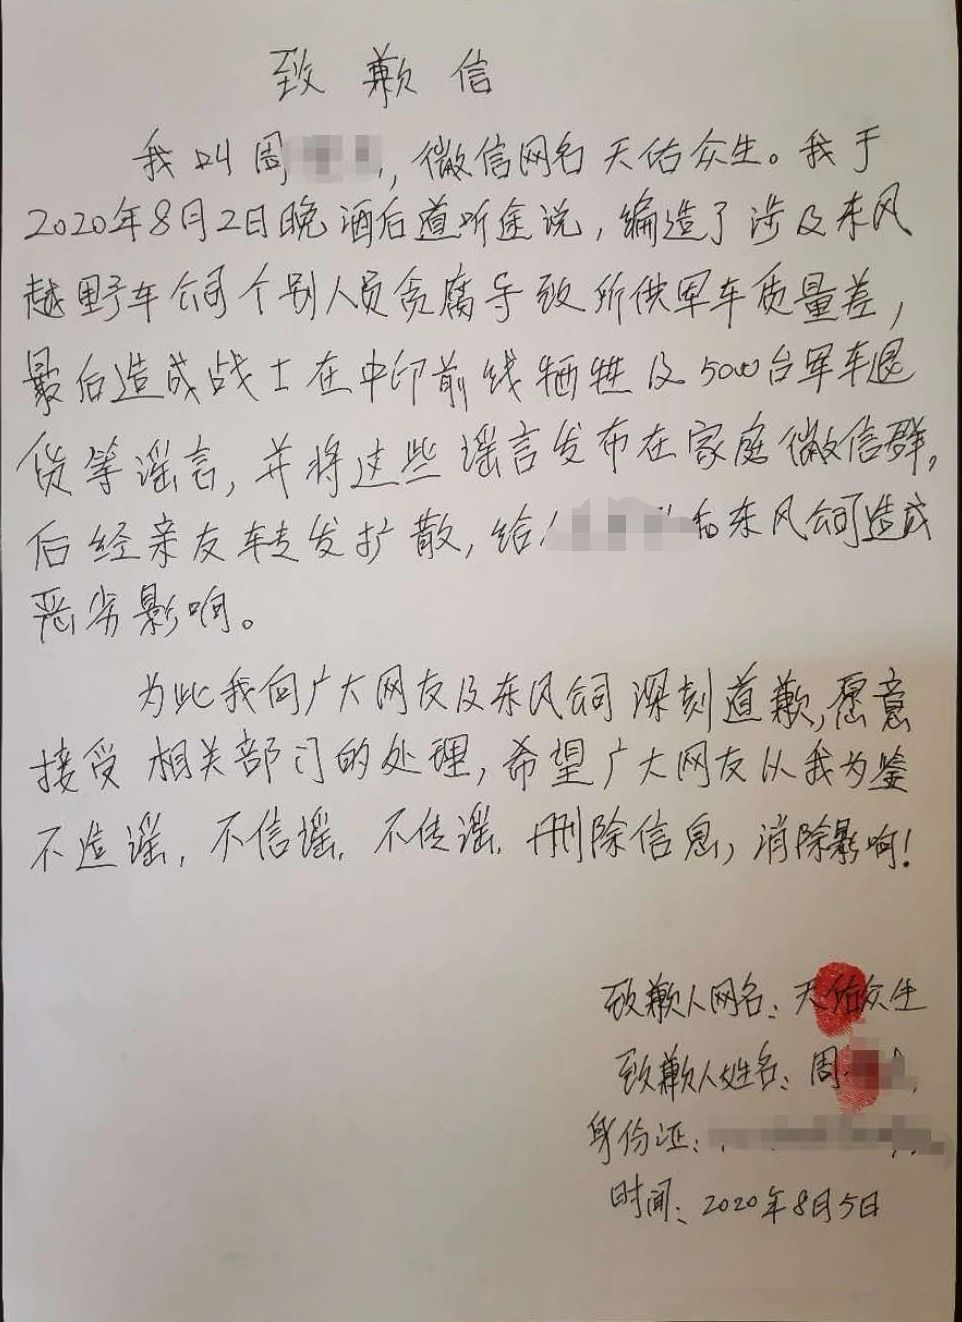 致歉信
我叫周，微信网名天佑众生。我于
2020年8月2日晚酒后道听途说，编造了涉及东风
越野车公司个别人员贪腐导致所供军车质量差，
最后造成战士在中印前线牺牲及5000台军车退
货等谣言，并将这些谣言发布在家庭微信群，
后经亲友转发扩散，给和东风公司造成
恶劣影响。
为此我向广大网友及东风公司深刻道歉，愿意
接受相关部门的处理，希望广大网友以我为鉴
不造谣，不信谣，不传谣，删除信息，消除影响！
致歉人网名：天佑众生
致歉人姓名：周
身份证：
时间：2020年8月5日